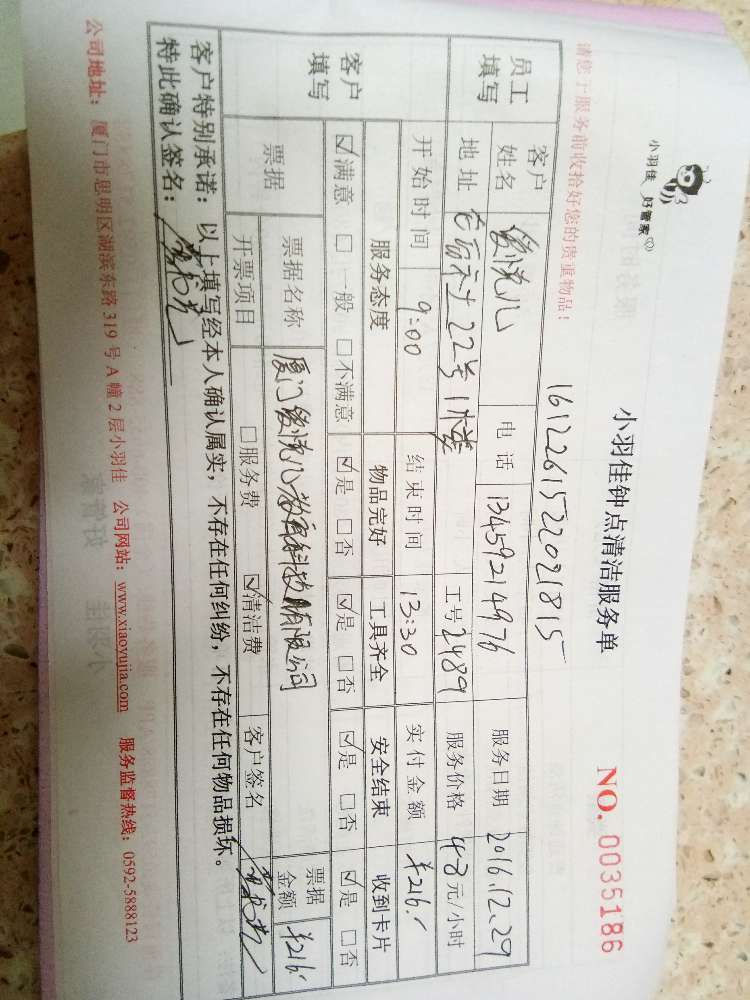 小羽佳 好管家
小羽佳钟点清洁服务单
NO. 0035186
1612261522021815
请您于服务前收拾好您的贵重物品！
员工填写
客户姓名 爱悦儿 电话 13459214976 服务日期 2016.12.29
地址 22号1楼 工号 2489 服务价格 48元/小时
开始时间 9:00 结束时间 13:30 实付金额 ¥216.
客户填写
服务态度 物品完好 工具齐全 安全结束 收到卡片
☑满意 □一般 □不满意 ☑是 □否 ☑是 □否 ☑是 □否 ☑是 □否
票据 票据名称 厦门爱悦儿教育科技有限公司 票据金额 ¥216.
开票项目 □服务费 ☑清洁费 客户签名
客户特别承诺：以上填写经本人确认属实，不存在任何纠纷，不存在任何物品损坏。
特此确认签名：
公司地址：厦门市思明区湖滨东路319号A幢2层小羽佳 公司网站：www.xiaoyujia.com 服务监督热线：0592-5888123